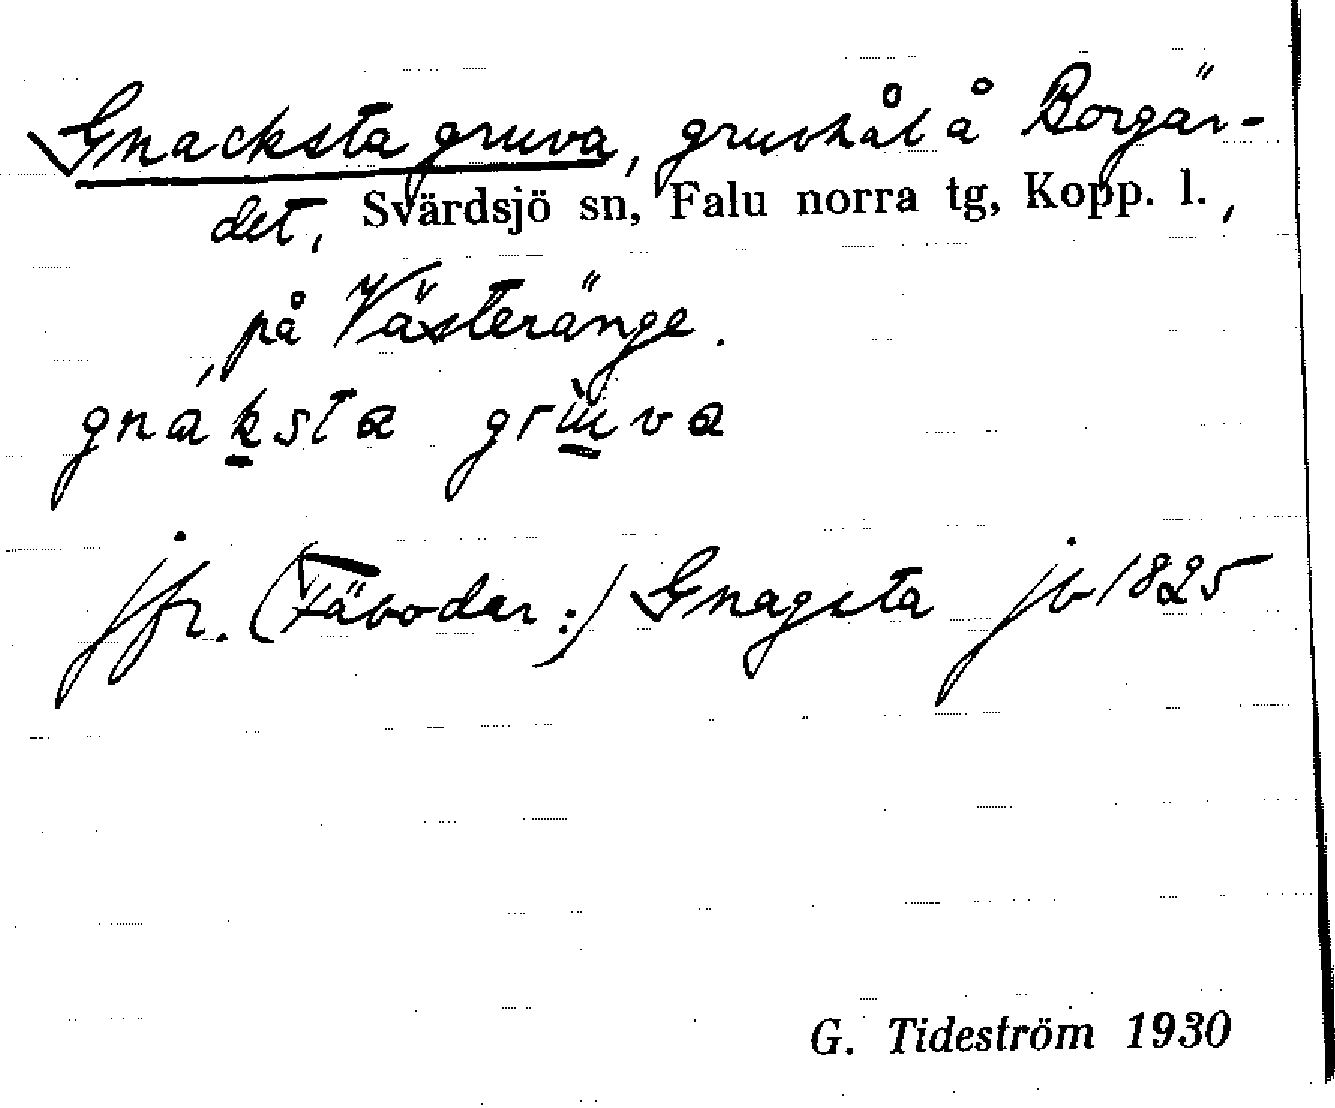 Gnacksta gruva, gruvhål å Borgär-
det, Svärdsjö sn, Falu norra tg, Kopp. l.,
på Västeränge.
gnáksta grùva
jfr. (Fäbodar:) Gnagsta jb 1825
G. Tideström 1930